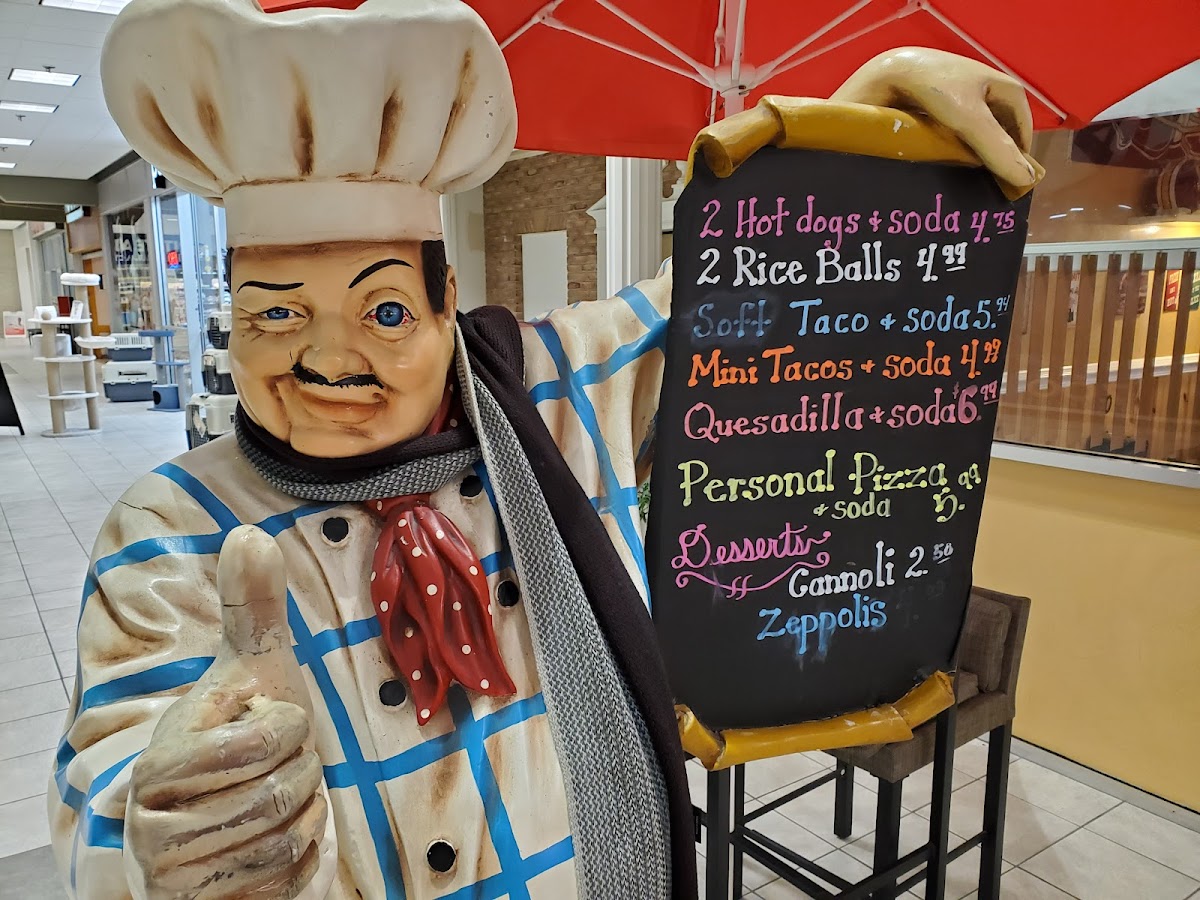 2 Hot dogs + soda 4.75
2 Rice Balls 4.99
Soft Taco + soda 5.94
Mini Tacos + soda 4.99
Quesadilla + soda $6.99
Personal Pizza
+ soda 5.99
Desserts
Cannoli 2.50
Zeppolis